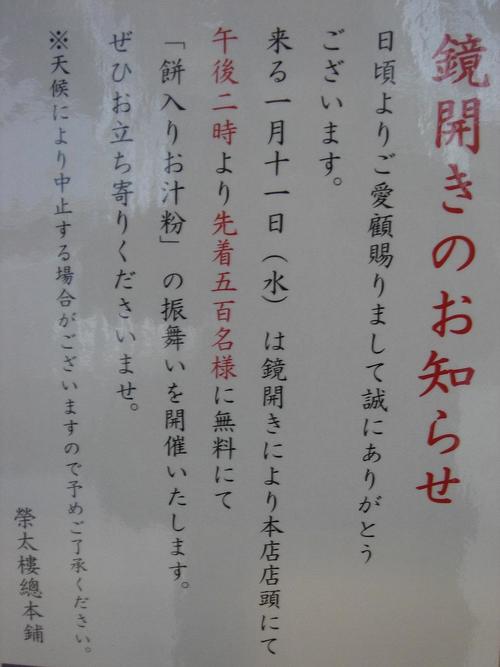 鏡開きのお知らせ
日頃よりご愛顧賜りまして誠にありがとう
ございます。
来る一月十一日（水）は鏡開きにより本店店頭にて
午後二時より先着五百名様に無料にて
「餅入りお汁粉」の振舞いを開催いたします。
ぜひお立ち寄りくださいませ。
※天候により中止する場合がございますので予めご了承ください。
榮太樓總本鋪